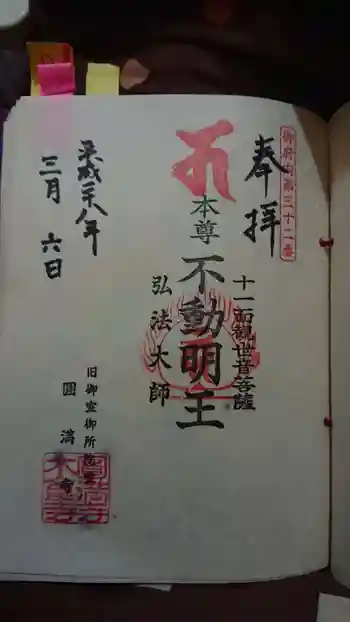 御府内第三十二番
奉拝
十一面観世音菩薩
本尊
不動明王
弘法大師
旧御室御所
圓満寺
平成二十八年
三月六日